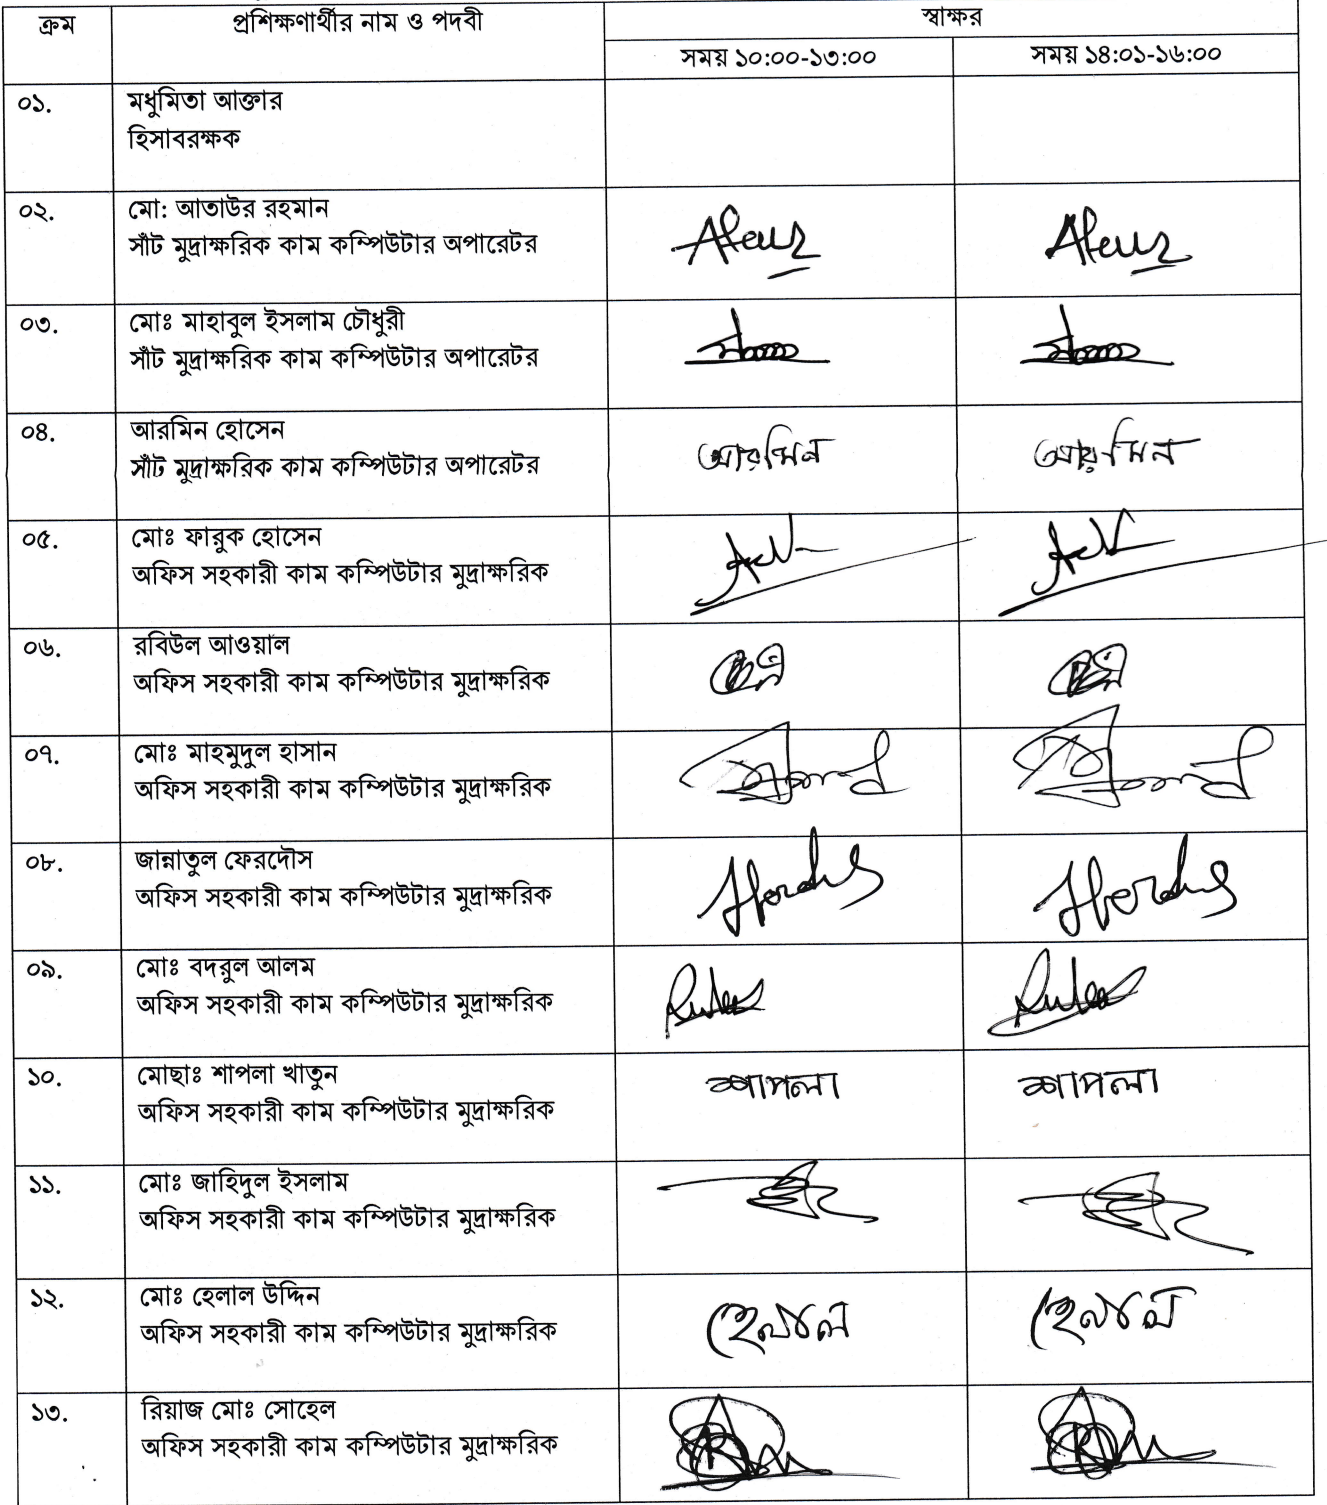 ক্রম প্রশিক্ষণার্থীর নাম ও পদবী স্বাক্ষর
সময় ১০:০০-১৩:০০ সময় ১৪:০১-১৬:০০
০১. মধুমিতা আক্তার
হিসাবরক্ষক
০২. মো: আতাউর রহমান
সাঁট মুদ্রাক্ষরিক কাম কম্পিউটার অপারেটর
০৩. মোঃ মাহাবুল ইসলাম চৌধুরী
সাঁট মুদ্রাক্ষরিক কাম কম্পিউটার অপারেটর
০৪. আরমিন হোসেন
সাঁট মুদ্রাক্ষরিক কাম কম্পিউটার অপারেটর আরমিন আরমিন
০৫. মোঃ ফারুক হোসেন
অফিস সহকারী কাম কম্পিউটার মুদ্রাক্ষরিক
০৬. রবিউল আওয়াল
অফিস সহকারী কাম কম্পিউটার মুদ্রাক্ষরিক
০৭. মোঃ মাহমুদুল হাসান
অফিস সহকারী কাম কম্পিউটার মুদ্রাক্ষরিক
০৮. জান্নাতুল ফেরদৌস
অফিস সহকারী কাম কম্পিউটার মুদ্রাক্ষরিক
০৯. মোঃ বদরুল আলম
অফিস সহকারী কাম কম্পিউটার মুদ্রাক্ষরিক
১০. মোছাঃ শাপলা খাতুন শাপলা শাপলা
অফিস সহকারী কাম কম্পিউটার মুদ্রাক্ষরিক
১১. মোঃ জাহিদুল ইসলাম
অফিস সহকারী কাম কম্পিউটার মুদ্রাক্ষরিক
১২. মোঃ হেলাল উদ্দিন
অফিস সহকারী কাম কম্পিউটার মুদ্রাক্ষরিক হেলাল হেলাল
১৩. রিয়াজ মোঃ সোহেল
অফিস সহকারী কাম কম্পিউটার মুদ্রাক্ষরিক